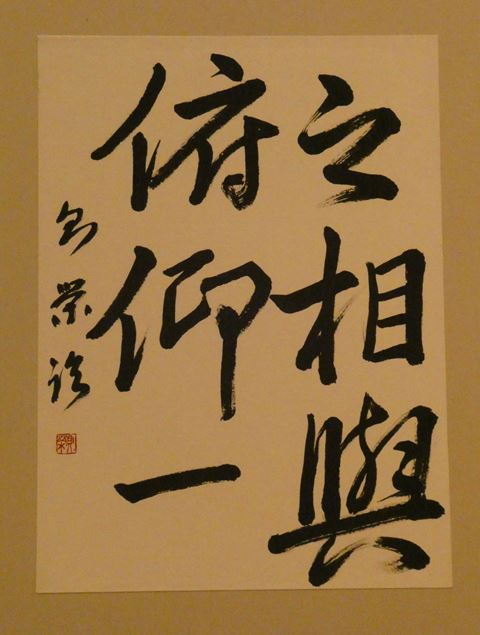 之相與
俯仰一